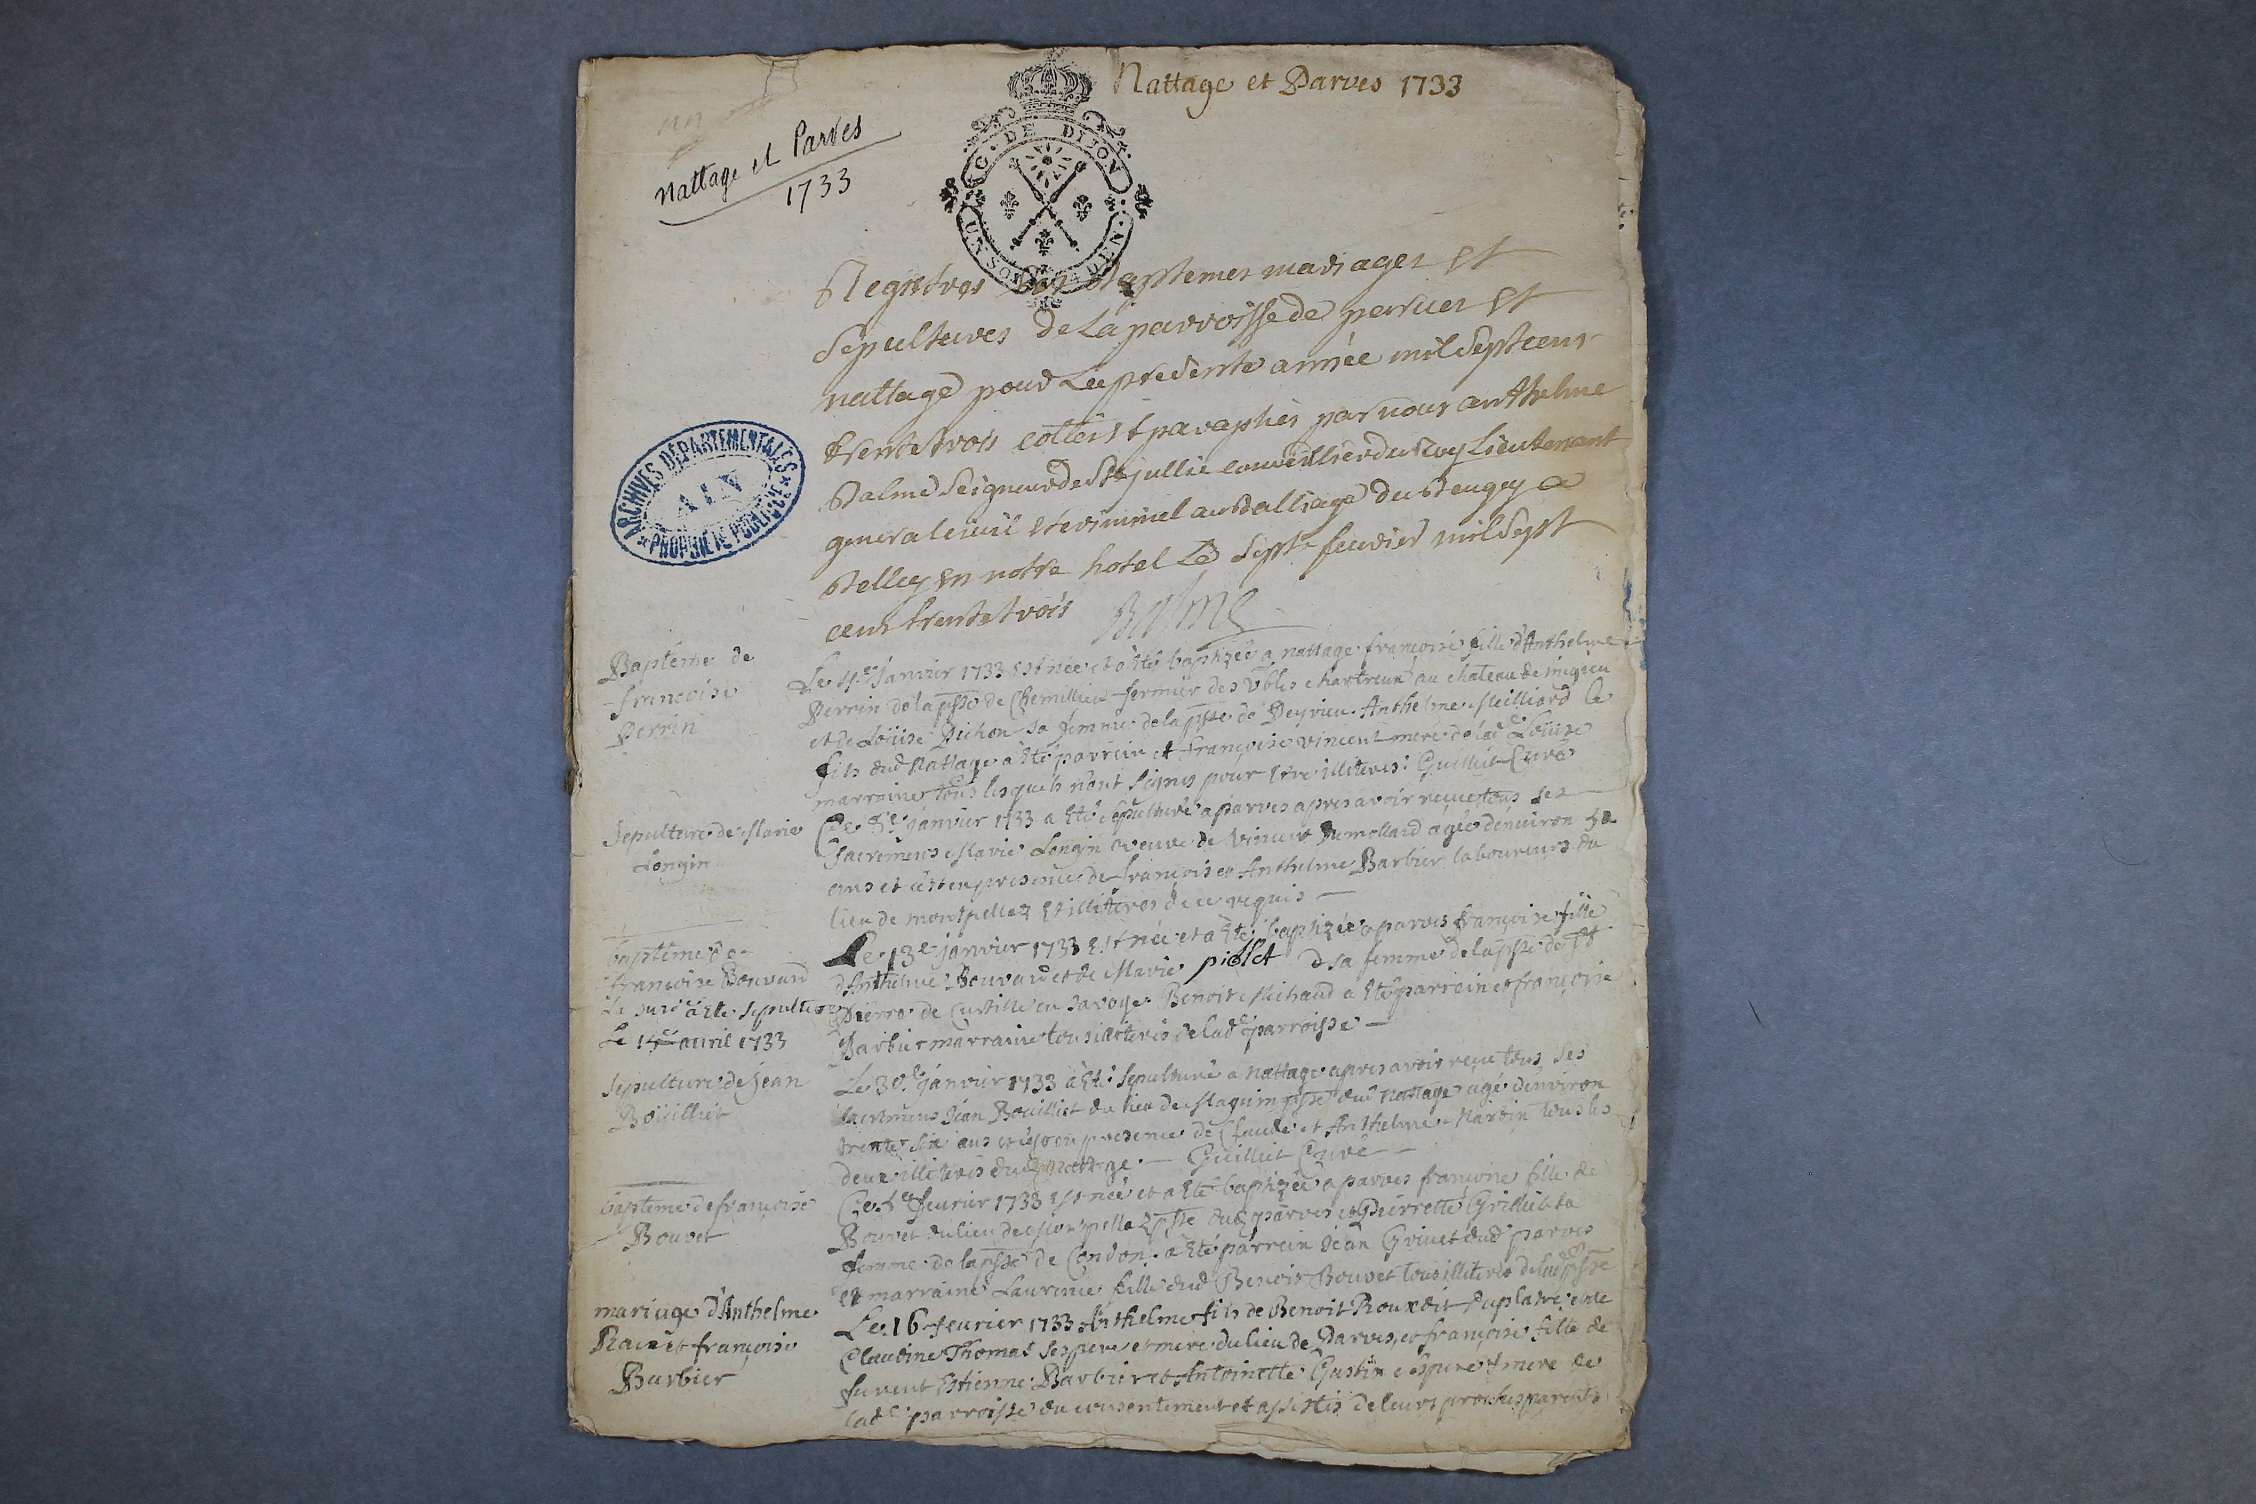 Nattage et Parves 1733
Nattage et Parves
1733
G. DE DIJON
ARCHIVES DÉPARTEMENTALES
AIN
PROPRIÉTÉ PUBLIQUE
Registres des Baptemes mariages Et
sepultures de La parroisse de parves Et
nattage pour La presente année mil Sept cent
trente trois cottés et paraphés par nous anthelme
Balme Seigneur de Ste jullie conseiller du Roy Lieutenant
general civil et criminel au Balliage du Beugey a
Belley En notre hotel Le sept feuvrier mil Sept
cent trente trois Balme
Bapteme de
francoise
Perrin
Le 4e Janvier 1733 Est née et a été baptizée a nattage francoise fille d'Anthelme
Perrin de la psse de Chemillieu fermier des Vbles chartreux au chateau de
et de Loüise Pichon sa femme de la psse de Peyrieu. Anthelme Meilliard le
fils dud Nattage a Eté parrein et françoise vincent mere de lad Loüise
marraine tous lesquels n'ont signes pour Etre illiteres. Guilliet Curé
Sepulture de Marie
Longin
Le 8e janvier 1733 a Eté sepulturé a parves apres avoir receu tous ses
sacremens Marie Longin veuve de vincent Dumollard agée d'environ
ans et c'est en presence de françois et Anthelme Barbier laboureurs du
lieu de montpellaz Et illiteres de ce requis
bapteme de
francoise Bouvard
a Ete sepulturee
Le 14e avril 1733
Le 13e janvier 1733 Est née et a Eté baptizée a parves françoise fille
d'Anthelme Bouvard et de Marie piolet sa femme de la psse de St
Pierre de Curtille en Savoye. Benoit Michaud a Eté parrein et françoise
Barbier marraine tous illiteres de lad parroisse
Sepulture de Jean
Boüilliet
Le 30e janvier 1733 a Eté sepulturé a nattage apres avoir receu tous ses
sacremens Jean Bouilliet du lieu de psse dud Nattage agé d'environ
trente six ans en presence de Claude et Anthelme Martin tous les
deux illiteres dud nattage. Guilliet Curé
bapteme de françoise
Bouvet
Le fevrier 1733 Est née et a Eté baptizée a parves françoise fille de
Bouvet du lieu de montpellaz psse dud parves et Pierrette Grilliet sa
femme de la psse de Condon. a Eté parrein Jean Grinet dud parves
et marraine Laurence fille dud Benoit Bouvet tous illiteres de lad psse
mariage d'Anthelme
Roux et françoise
Barbier
Le 16 fevrier 1733 Anthelme fils de Benoit Roux dit Duplatre et de
Claudine Thomas ses pere et mere du lieu de Parves, et françoise fille de
furent Etienne Barbier et Antoinette Gustin ses pere et mere de
lad parroisse du consentement et assistés de leurs proches parents